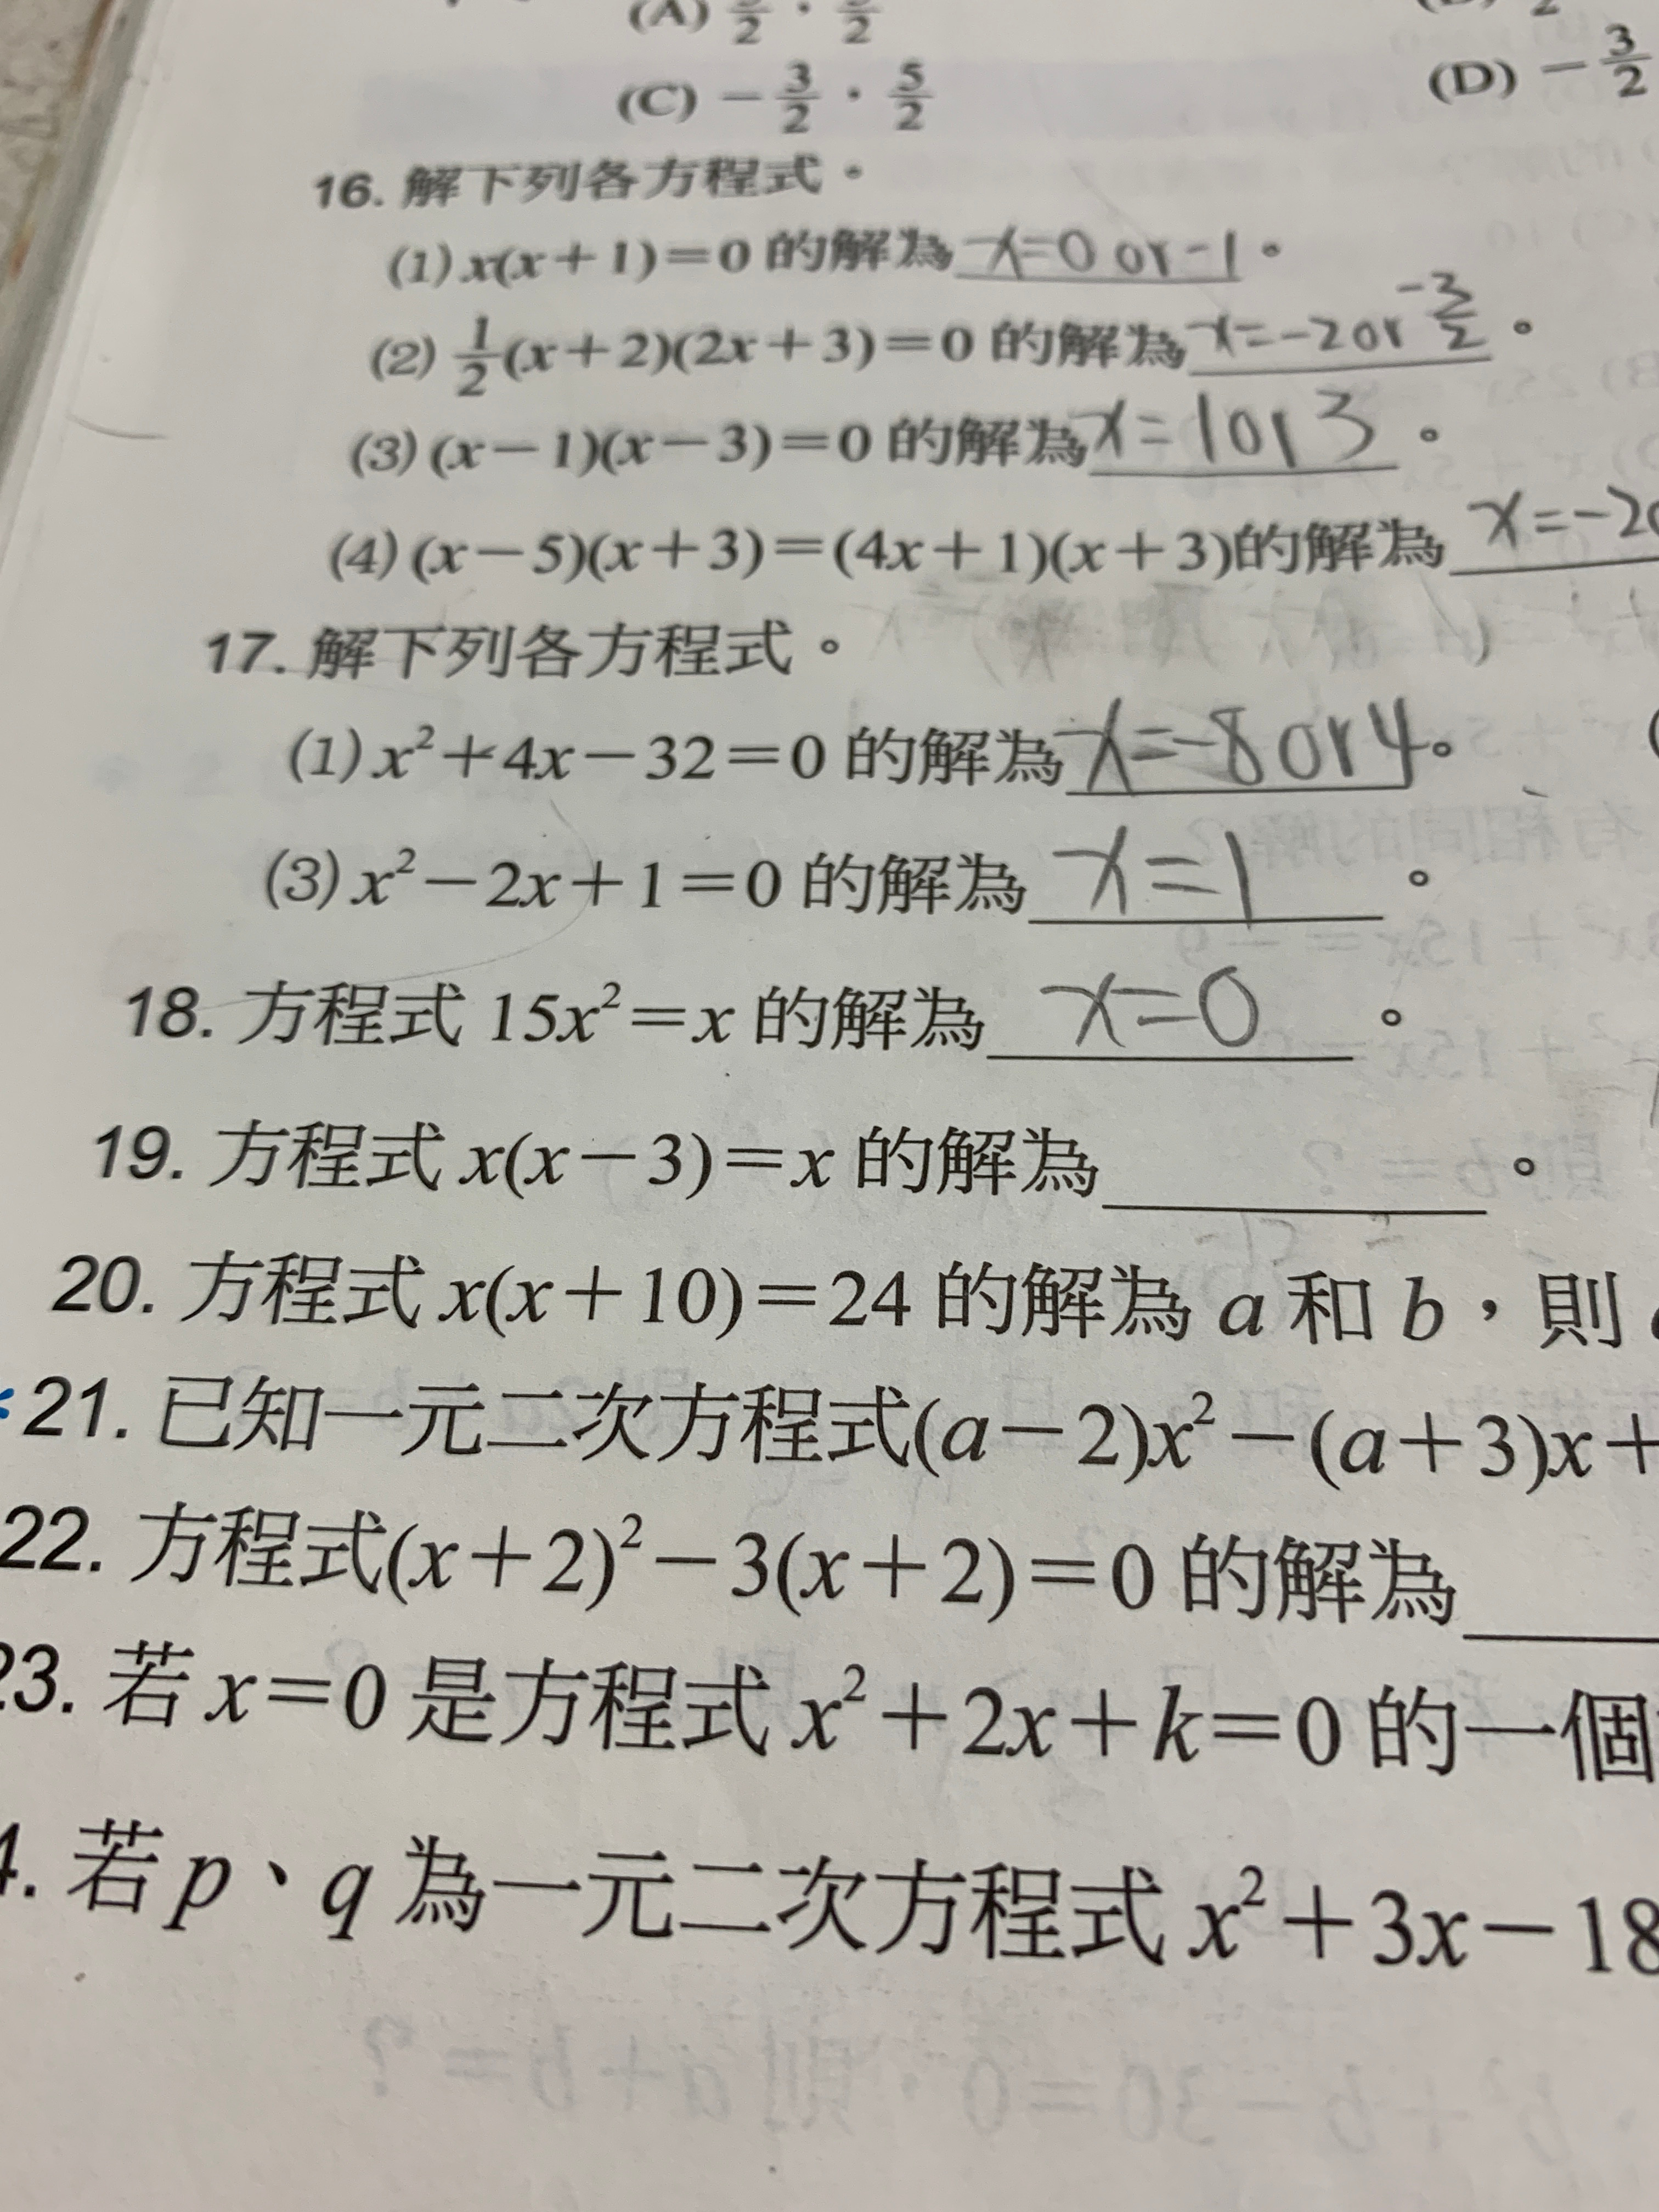 (C) −3/2 · 5/2
(D) −3/2
16. 解下列各方程式。
(1) x(x+1)=0 的解為 x=0 or -1。
(2) 1/2(x+2)(2x+3)=0 的解為 x=-2 or -3/2。
(3) (x−1)(x−3)=0 的解為 x=1 or 3。
(4) (x−5)(x+3)=(4x+1)(x+3)的解為 x=-2
17. 解下列各方程式。
(1) x²+4x−32=0 的解為 x=-8 or 4。
(3) x²−2x+1=0 的解為 x=1。
18. 方程式 15x²=x 的解為 x=0。
19. 方程式 x(x−3)=x 的解為＿＿＿＿。
20. 方程式 x(x+10)=24 的解為 a 和 b，則
21. 已知一元二次方程式(a−2)x²−(a+3)x+
22. 方程式(x+2)²−3(x+2)=0 的解為
23. 若 x=0 是方程式 x²+2x+k=0 的一個
4. 若 p、q 為一元二次方程式 x²+3x−18